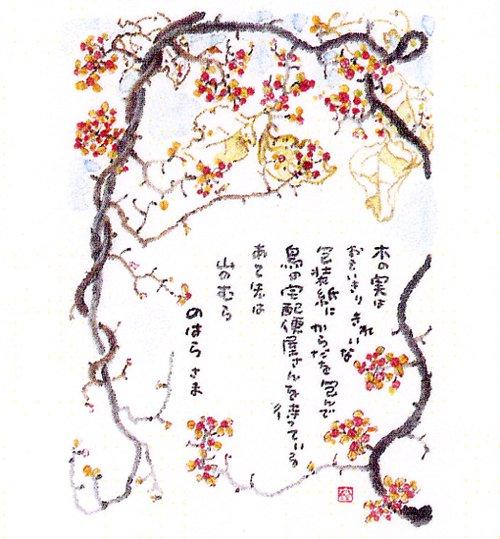 木の実は
おもいきり きれいな
包装紙に からだを 包んで
鳥の宅配便屋さんを待っている
あて先は
山のむら
のはら さま